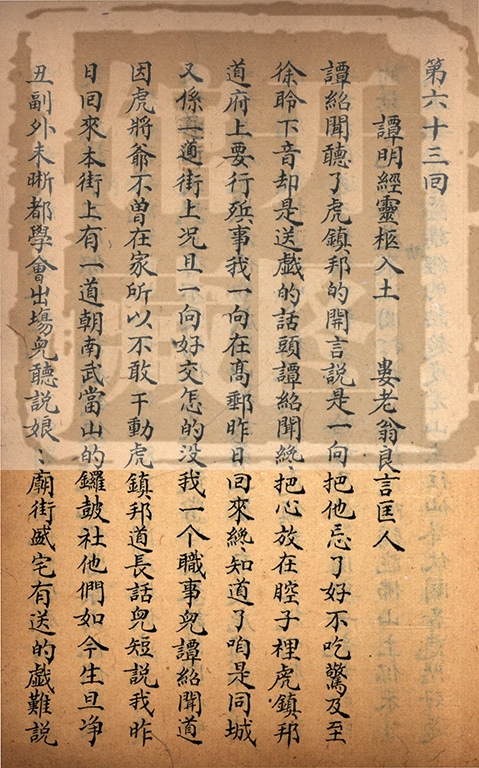 第六十三回
譚明經靈柩入土　婁老翁良言匡人
譚紹聞聽了虎鎮邦的開言說是一向把他忘了好不吃驚及至
徐聆下音却是送戲的話頭譚紹聞終把心放在腔子裡虎鎮邦
道府上要行殯事我一向在髙郵昨日回來終知道了咱是同城
又係一道街上况且一向好交怎的没我一个職事兒譚紹聞道
因虎將爺不曾在家所以不敢干動虎鎮邦道長話兒短説我昨
日回來本街上有一道朝南武當山的鑼皷社他們如今生旦净
丑副外末腳都學會出塲兒聽説娘〻廟街盛宅有送的戲難説